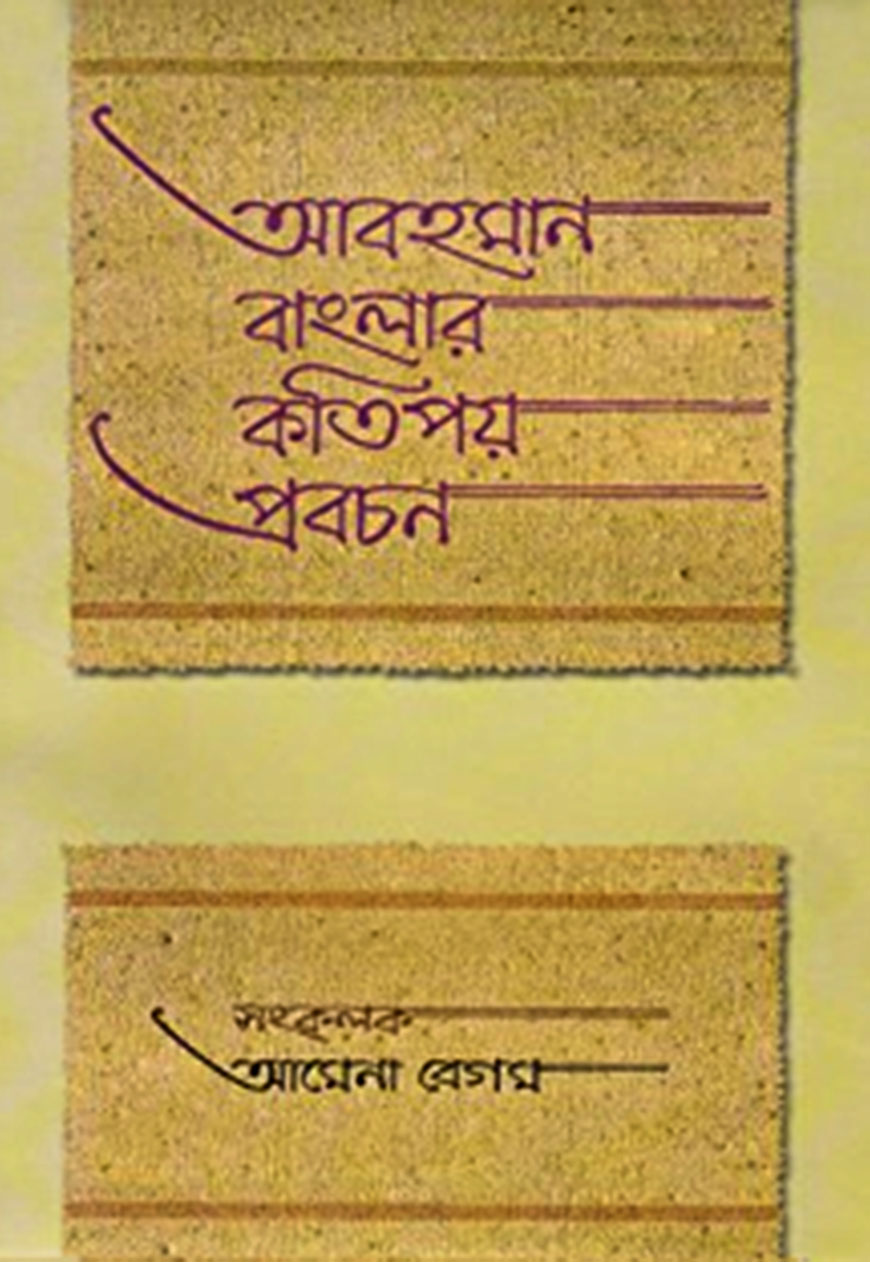 আবহমান
বাংলার
কতিপয়
প্রবচন
সংকলক
আমেনা বেগম